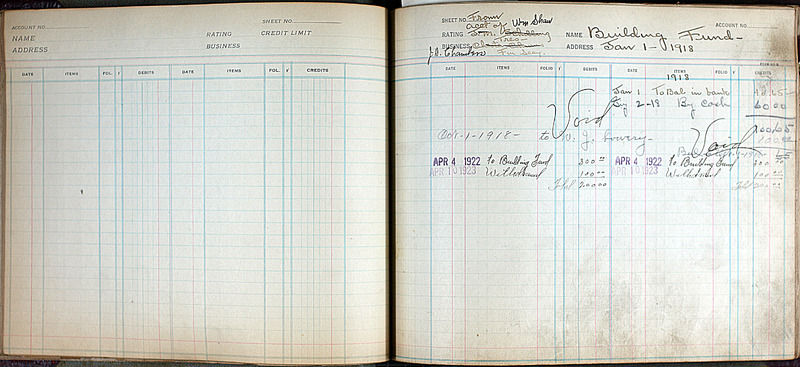 ACCOUNT NO.
SHEET NO.
NAME
RATING
CREDIT LIMIT
ADDRESS
BUSINESS
DATE ITEMS FOL. √ DEBITS DATE ITEMS FOL. √ CREDITS
SHEET NO. From
acct of Wm Shaw
ACCOUNT NO.
RATING
NAME Building Fund
Treo
BUSINESS
ADDRESS Jan 1 - 1918
J.O. Chambers Fin Sec.
DATE ITEMS FOLIO √ DEBITS DATE ITEMS FOLIO √ CREDITS
1918
Jan 1 To Bal in bank
2-18 By Cash 60 00
Void
Oct-1-1918- to W. J. Lowery- Void
APR 4 1922 To Building Fund 300 00 APR 4 1922 To Building Fund 300 00
APR 10 1923 Withdrawd 100 00 APR 10 1923 Withdrawd 100 00